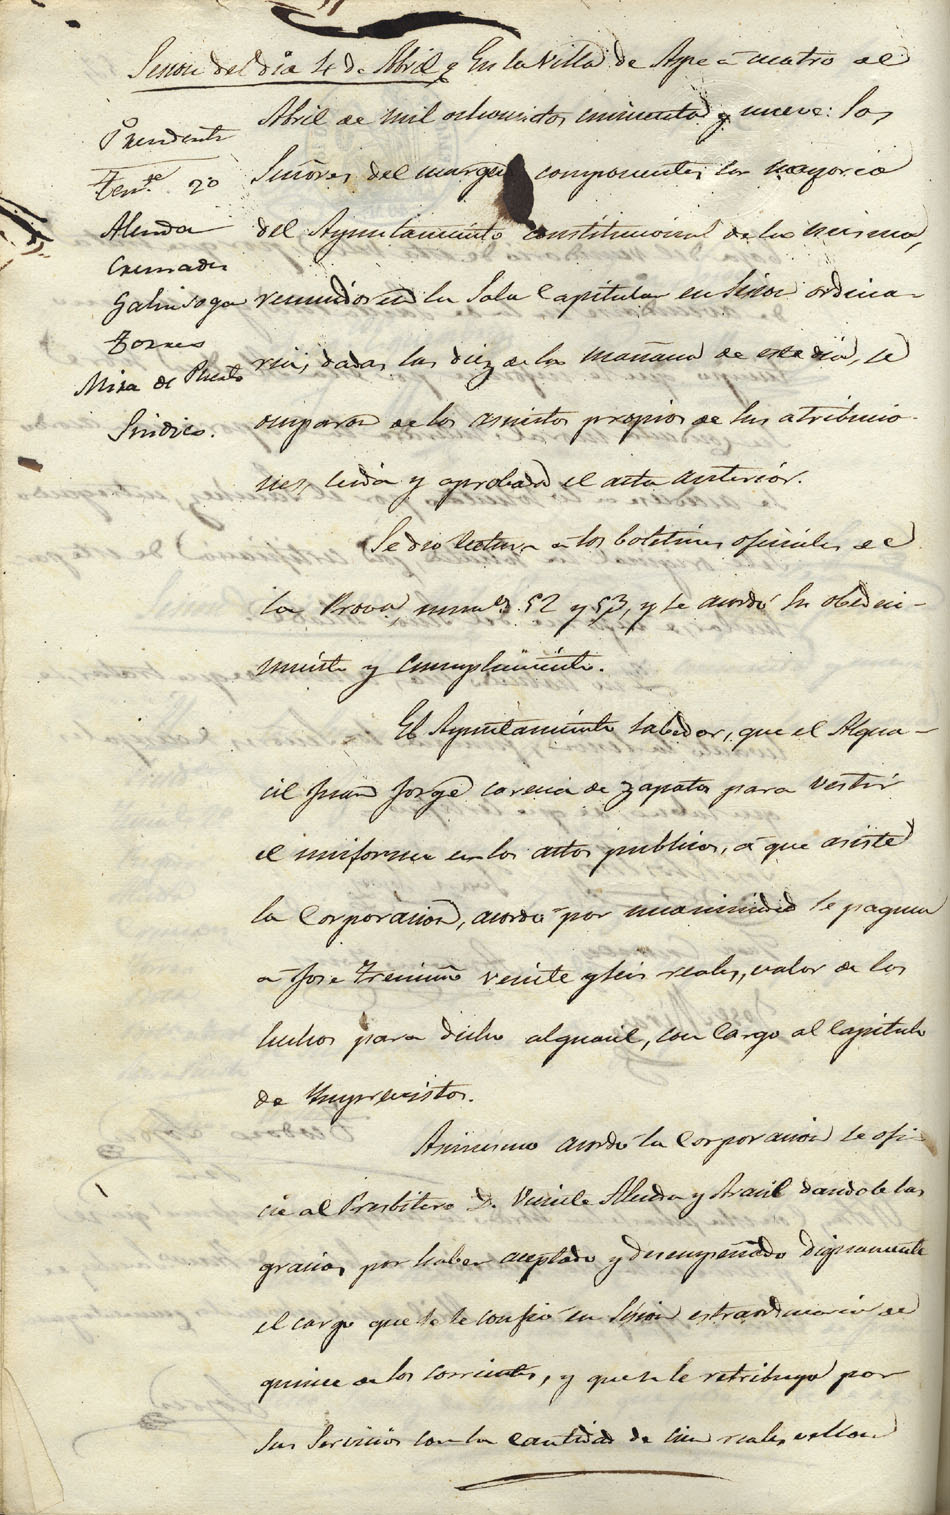 Sesion del dia 4 de Abril
En la villa de Aspe a cuatro de
Abril de mil ochocientos cincuenta y nueve: los
Señores del margen componentes la mayoria
del Ayuntamiento constitucional de la misma,
reunidos en la Sala Capitular en Sesion ordina-
ria, dadas las diez de la mañana de este dia, se
ocuparon de los asuntos propios de sus atribucio
nes, leida y aprobada el acta anterior.
Presidente
Tente. 2o
Almodovar
Cremades
Galinsoga
Torres
Mira de Prieto
Sindico.
Se dio lectura a los boletines oficiales de
la Prova numos 52 y 53, y se acordó su obedeci-
miento y cumplimiento.
El Ayuntamiento sabedor, que el Algua-
cil Juan Jorge carecia de zapatos para vestir
el uniforme en los actos publicos, á que asiste
la Corporacion, acordó por unanimidad se paguen
a Jose Treviño veinte y seis reales, valor de los
hechos para dicho alguacil, con cargo al Capitulo
de Imprevistos.
Asimismo acordó la Corporacion se ofi
cie al Presbitero D. Vicente Alenda y Aracil dandole las
gracias por haber aceptado y desempeñado dignamente
el cargo que se le confió en Sesion estraordinaria de
quince de los corrientes, y que se le retribuya por
sus Servicios con la cantidad de cien reales vellon